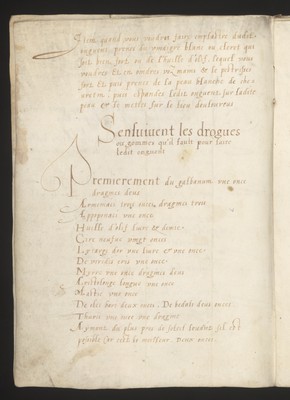 Item quand vous voudres faire emplastre dudit
unguent, prenes du vinaigre blanc ou cleret qui
soit bien fort ou de l'huille d'olif, lequel vous
vous
et puis prenes de la peau blanche de che-
vrotin, puis espandes ledit unguent sur ladite
peau & le mettes sur le lieu douloureus
Sensuiuent les drogues
ou gommes qu'il fault pour faire
ledit unguent
Premierement du galbanum une once
dragmes deus
Armoniac trois onces, dragmes trois
Appoponais une once
Huille d'olif liure & demie
Cire neufue vingt onces
Lytarge d'or une liure & une once
De verdis gris une once
Myrre une once dragmes deus
Aristologe longue une once
Mastic une once
De deus onces
Thuris une once une dragme
Aymant du plus pres de soleil leuant sil est
possible car cest le meilleur, deux onces